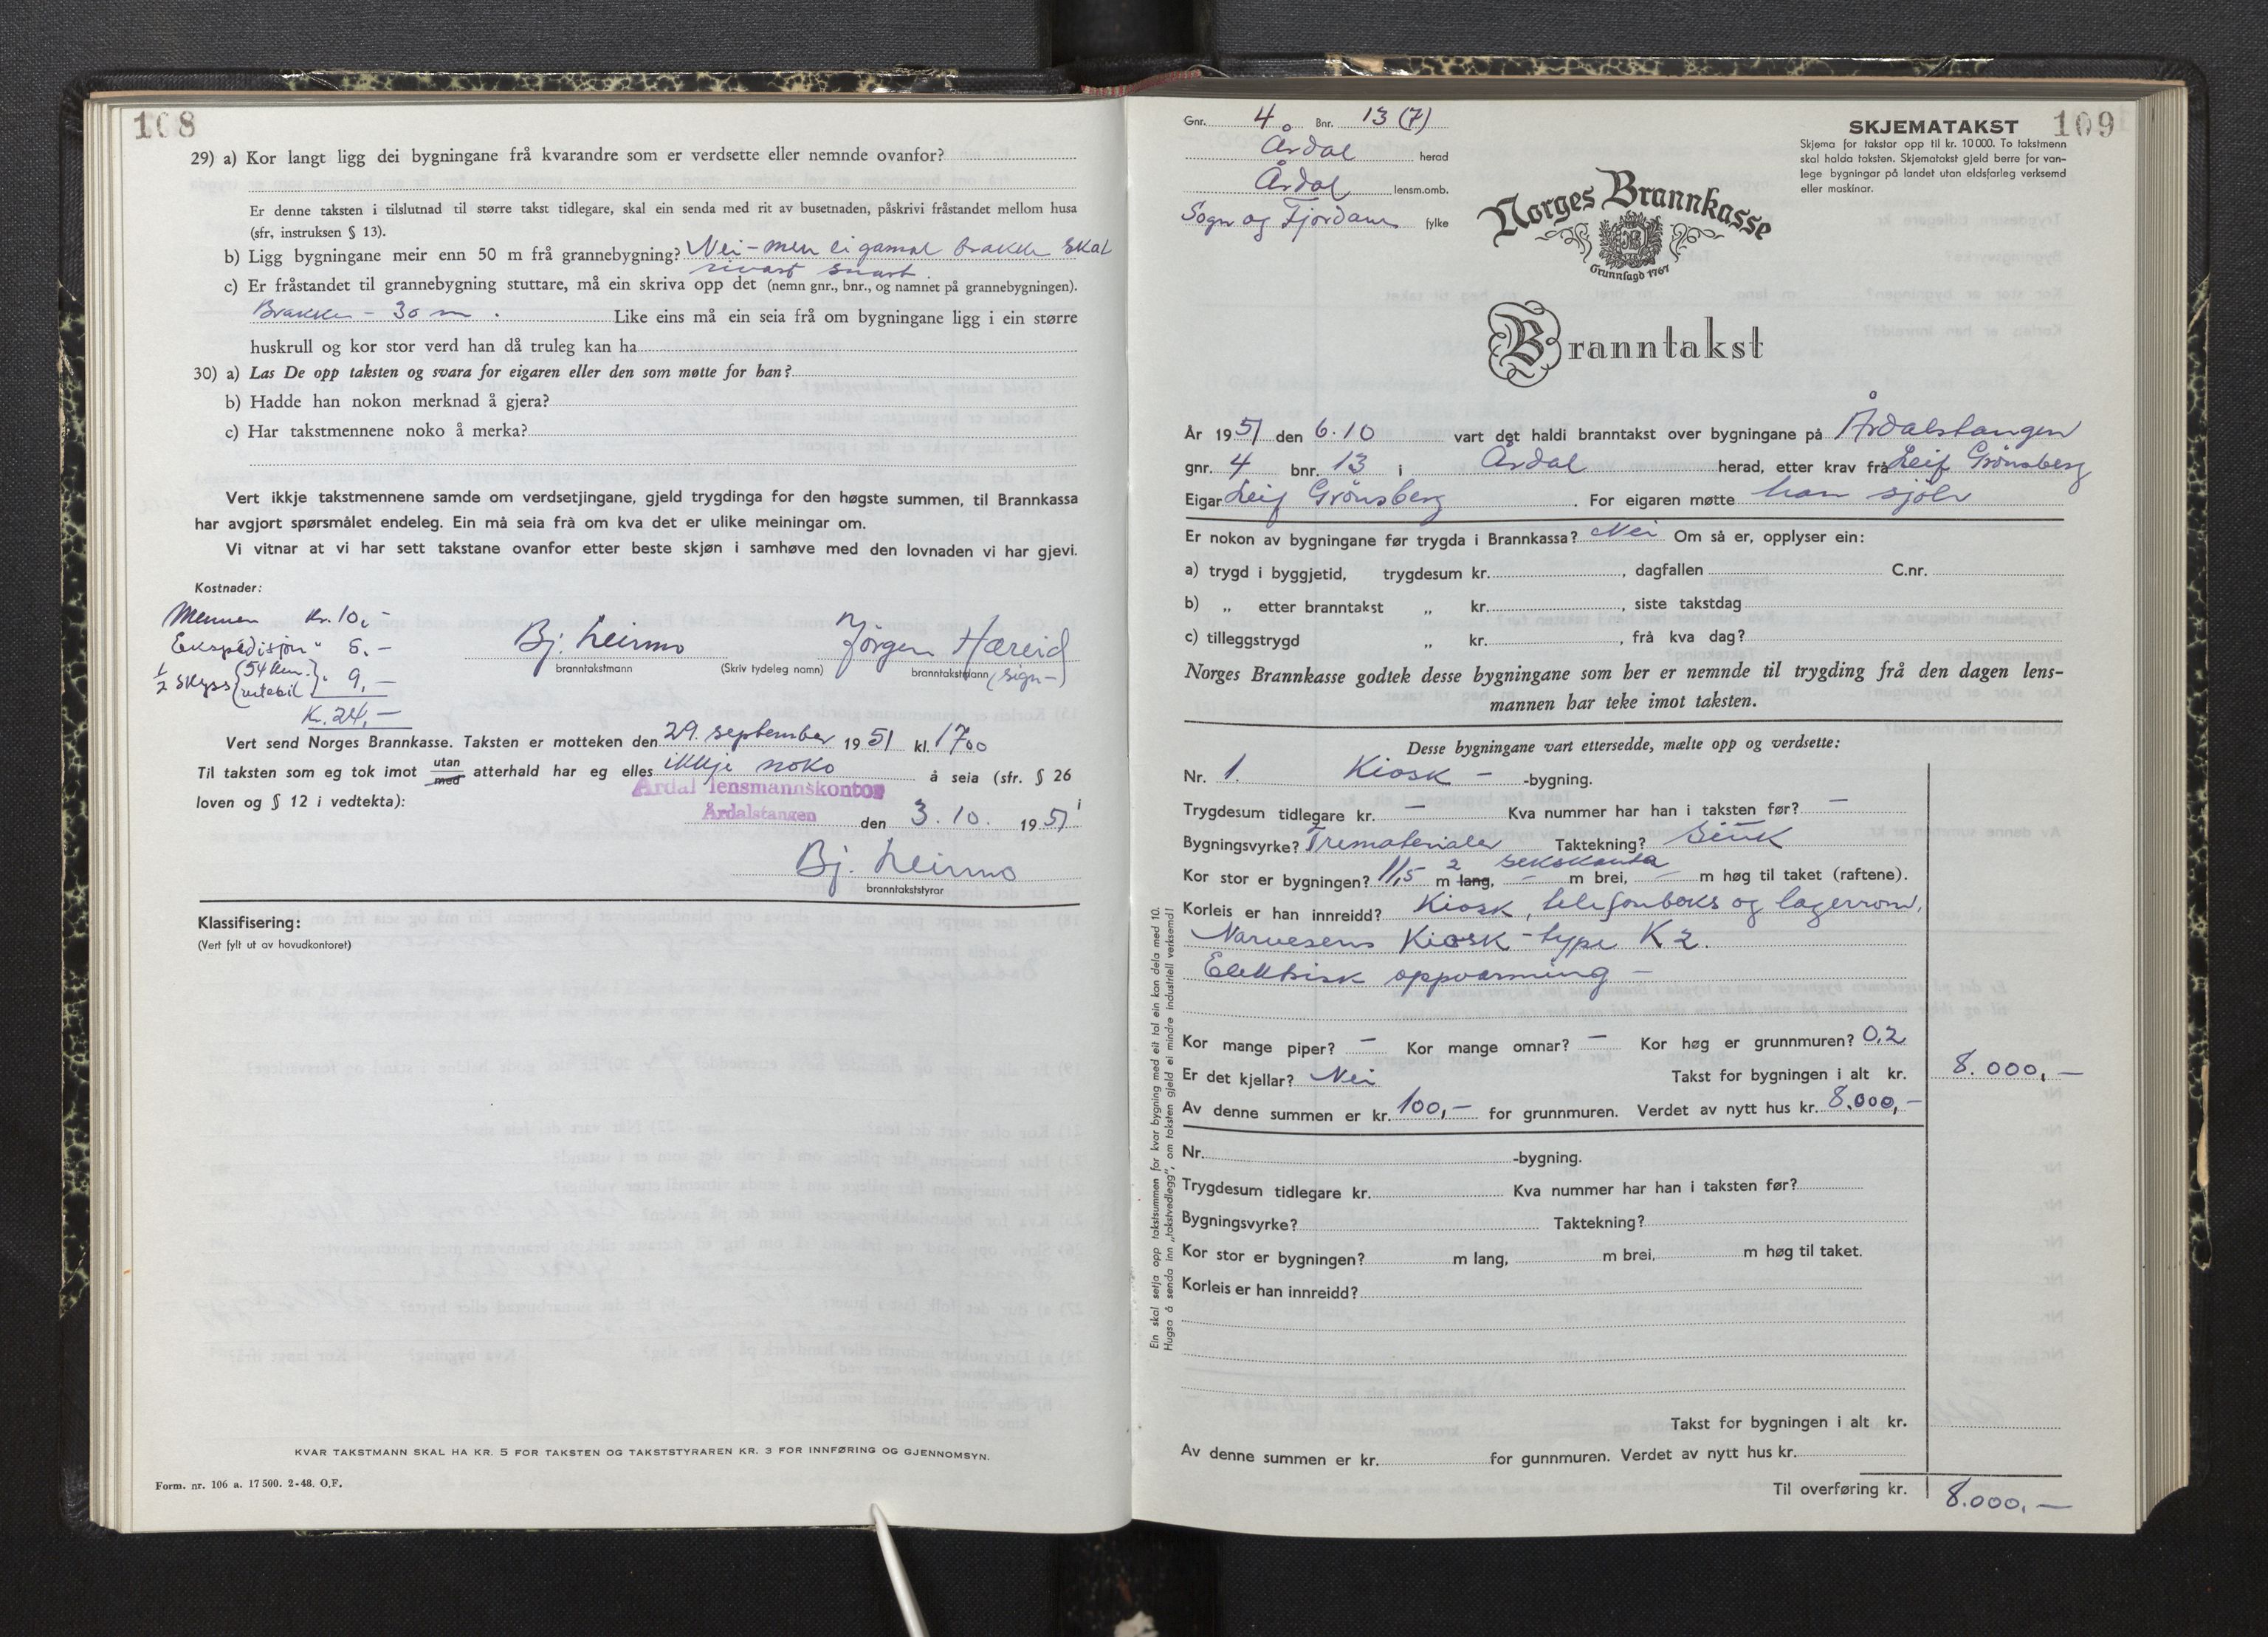 108
29) a) Kor langt ligg dei bygningane frå kvarandre som er verdsette eller nemnde ovanfor?
Er denne taksten i tilslutnad til større takst tidlegare, skal ein senda med rit av busetnaden, påskrivi fråstandet mellom husa
(sfr, instruksen § 13).
b) Ligg bygningane meir enn 50 m frå grannebygning? Nei – men ei gamal brakke skal
rivast snart.
c) Er fråstandet til grannebygning stuttare, må ein skriva opp det (nemn gnr., bnr., og namnet på grannebygningen).
Brakke – 30 m . Like eins må ein seia frå om bygningane ligg i ein større
huskrull og kor stor verd han då truleg kan ha
30) a) Las De opp taksten og svara for eigaren eller den som møtte for han?
b) Hadde han nokon merknad å gjera?
c) Har takstmennene noko å merka?
Vert ikkje takstmennene samde om verdsetjingane, gjeld trygdinga for den høgste summen, til Brannkassa
har avgjort spørsmålet endeleg. Ein må seia frå om kva det er ulike meiningar om.
Vi vitnar at vi har sett takstane ovanfor etter beste skjøn i samhøve med den lovnaden vi har gjevi.
Kostnader:
Mennen Kr. 10,-
Ekspedisjon " 5,-
1/2 Skyss (54 km. " 9,-
Kr. 24,-
Bj. Leirmo Jørgen Hæreid
branntakstmann (Skriv tydeleg namn) branntakstmann (sign-)
Vert send Norges Brannkasse. Taksten er motteken den 29. september 1951 kl. 1700
Til taksten som eg tok imot utan med atterhald har eg elles ikkje noko å seia (sfr. § 26 i
loven og § 12 i vedtekta):
Årdal lensmannskontor
Årdalstangen den 3. 10. 1951
Bj. Leirmo
branntakststyrar
Klassifisering:
(Vert fylt ut av hovudkontoret)
KVAR TAKSTMANN SKAL HA KR. 5 FOR TAKSTEN OG TAKSTSTYRAREN KR. 3 FOR INNFØRING OG GJENNOMSYN.
Form. nr. 106 a. 17 500. 2-48. O.F.
109
Gnr. 4 Bnr. 13 (7)
Årdal herad
Årdal lensm.omb.
Sogn og Fjordane fylke
SKJEMATAKST
Skjema for takstar opp til kr. 10 000. To takstmenn
skal halda taksten. Skjematakst gjeld berre for van-
lege bygningar på landet utan eldsfarleg verksemd
eller maskinar.
Norges Brannkasse
Grunnlagd 1767
Branntakst
År 1951 den 6. 10 vart det haldi branntakst over bygningane på Årdalstangen
gnr. 4 bnr. 13 i Årdal herad, etter krav frå Leif Grønsberg
Eigar Leif Grønsberg . For eigaren møtte han sjølv
Er nokon av bygningane før trygda i Brannkassa? Nei Om så er, opplyser ein:
a) trygd i byggjetid, trygdesum kr. , dagfallen C.nr.
b) „ etter branntakst „ kr. , siste takstdag
c) tilleggstrygd „ kr. , frå kva dag?
Norges Brannkasse godtek desse bygningane som her er nemnde til trygding frå den dagen lens-
mannen har teke imot taksten.
Desse bygningane vart ettersedde, mælte opp og verdsette:
Nr. 1. Kiosk – -bygning.
Trygdesum tidlegare kr. – Kva nummer har han i taksten før? –
Bygningsvyrke? Trematerialer Taktekning? Sink
Kor stor er bygningen? 11,5 m 2 lang, sekskanta – m brei, – m høg til taket (raftene).
Korleis er han innreidd? Kiosk, telefonboks og lagerrom,
Narvesens Kiosk-type K 2.
Elektrisk oppvarming –
Kor mange piper? – Kor mange omnar? – Kor høg er grunnmuren? 0,2
Er det kjellar? Nei Takst for bygningen i alt kr. 8.000,-
Av denne summen er kr. 100,- for grunnmuren. Verdet av nytt hus kr. 8.000,-
Nr. -bygning.
Trygdesum tidlegare kr. Kva nummer har han i taksten før?
Bygningsvyrke? Taktekning?
Kor stor er bygningen? m lang, m brei, m høg til taket.
Korleis er han innreidd?
Takst for bygningen i alt kr.
Av denne summen er kr. for gunnmuren. Verdet av nytt hus kr.
Til overføring kr. 8.000,-
Ein skal setja opp takstsummen for kvar bygning med eit tal ein kan dela med 10.
Hugsa å senda inn „takstvedlegg", om taksten gjeld ei mindre industriell verksemd!